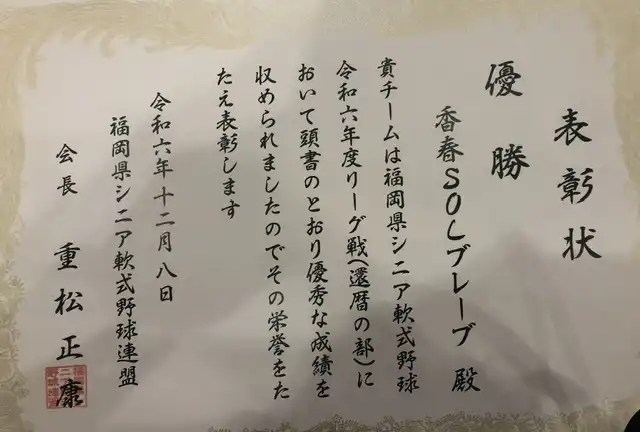 表彰状
優勝
香春SOLブレーブ 殿
貴チームは福岡県シニア軟式野球
令和六年度リーグ戦(還暦の部)に
おいて頭書のとおり優秀な成績を
収められましたのでその栄誉をた
たえ表彰します
令和六年十二月八日
福岡県シニア軟式野球連盟
会長 重松正康